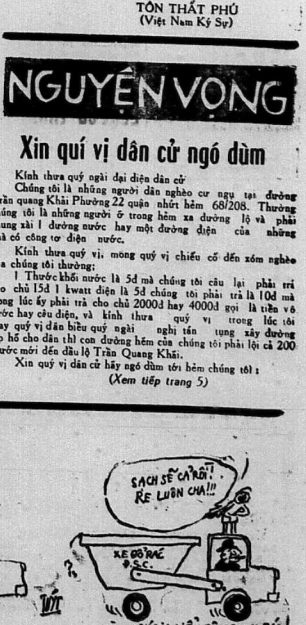 TÔN THẤT PHÚ
(Việt Nam Ký Sự)
NGUYỆN VỌNG
Xin quí vị dân cử ngó dùm
Kính thưa quý ngài đại diện dân cử
Chúng tôi là những người dân nghèo cư ngụ tại đường
Trần quang Khải Phường 22 quận nhứt hẻm 68/208. Thường
úng tôi là những người ở trong hẻm xa đường lộ và phải
ung xài 1 đường nước hay một đường điện của những
à có công tơ điện nước.
Kính thưa quý vị, mong quý vị chiếu cố đến xóm nghèo
a chúng tôi thường:
1 Thước khối nước là 5đ mà chúng tôi câu lại phải trả
o chủ 15đ 1 kwatt điện là 5đ chúng tôi phải trả là 10đ mà
ong lúc ấy phải trả cho chủ 2000đ hay 4000đ gọi là tiền vô
ớc hay câu điện, và kính thưa quý vị trong lúc tôi
ay quý vị dân biểu quý ngài nghị tấn tụng xây đường
hố cho dân thì con đường hẻm của chúng tôi phải lội cả 200
ước mới đến đầu lộ Trần Quang Khải.
Xin quý vị dân cử hãy ngó dùm tới hẻm chúng tôi :
(Xem tiếp trang 5)
SẠCH SẼ CẢ RỒI!
RE LUÔN CHA!!!
XE ĐỔ RÁC
Đ.S.C.